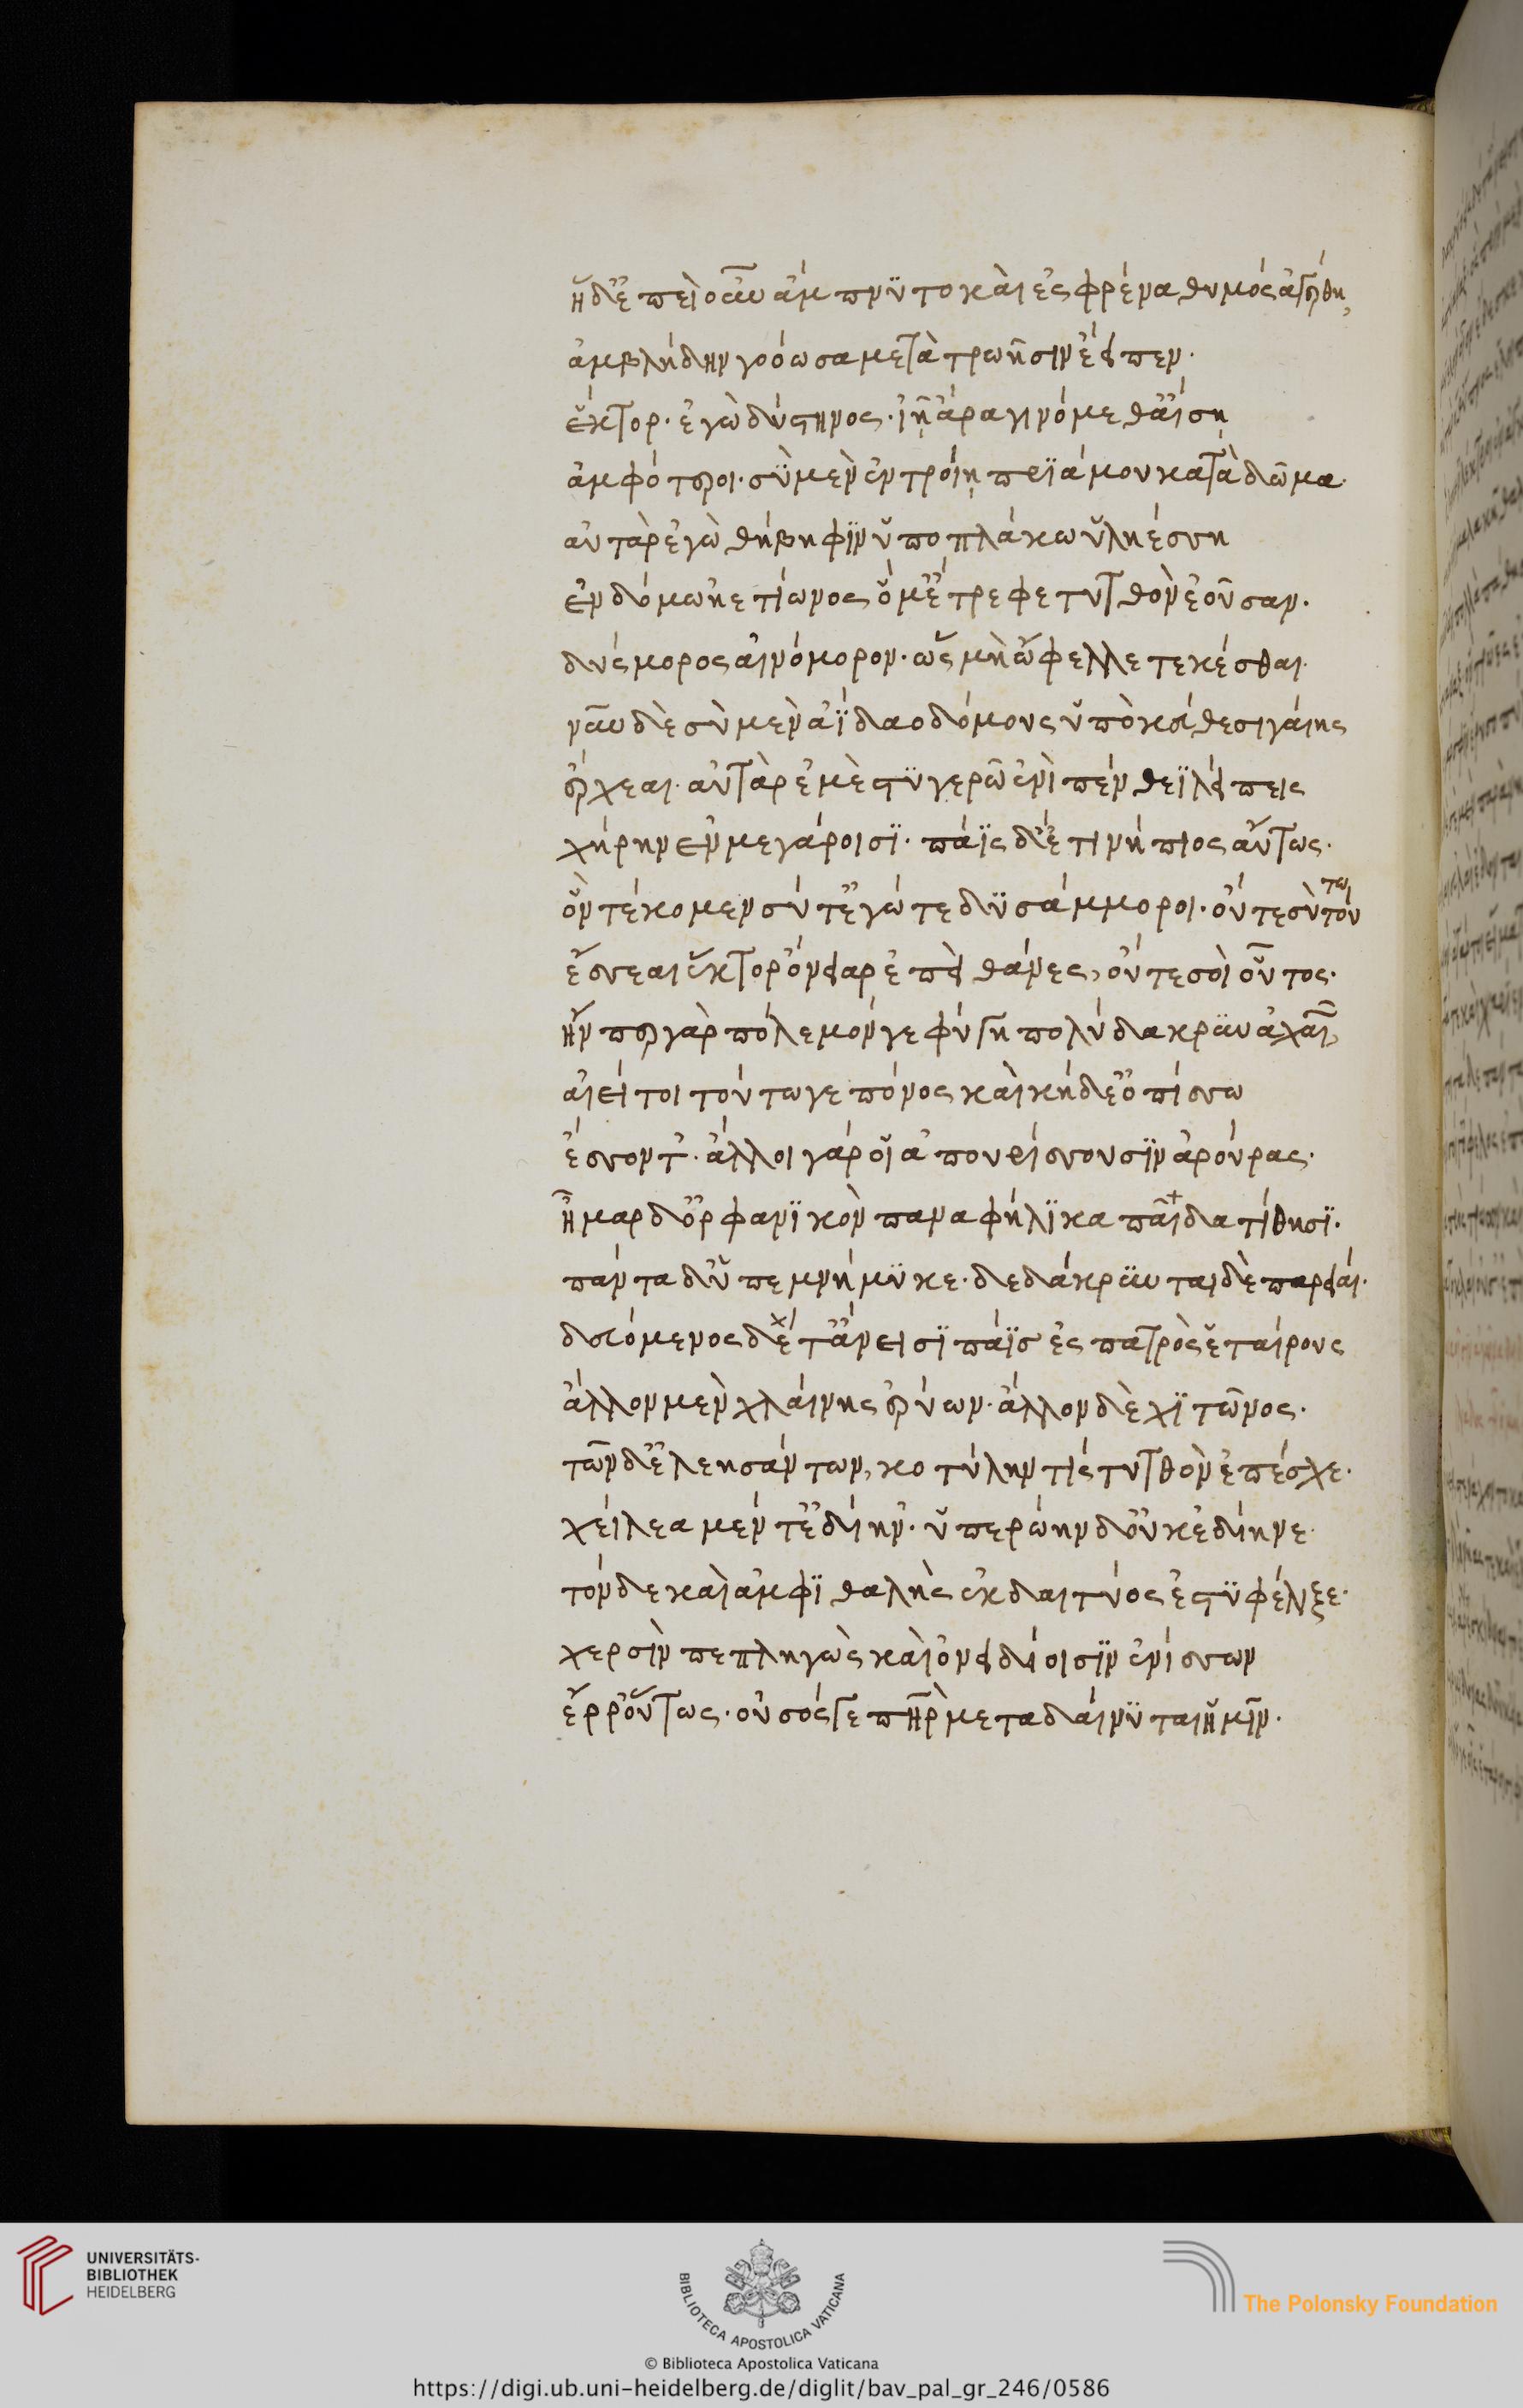 ἡ δ' ἐπεὶ οὖν ἄμπνϋτο καὶ ἐς φρένα θυμὸς ἀγέρθη,
ἀμβλήδην γοόωσα μετὰ τρωῇσιν ἔειπεν.
ἕκτορ. ἐγὼ δύστηνος. ἰῇ ἄρα γινόμεθ' αἴσῃ
ἀμφότεροι. σὺ μὲν ἐν τροίῃ πρϊάμου κατὰ δῶμα.
αὐτὰρ ἐγὼ θήβηφϊν ὑπο πλάκω ὑληέσση
ἐν δόμω ἠετίωνος ὅ μ' ἔτρεφε τυτθὸν ἐοῦσαν.
δύσμορος αἰνόμορον. ὡς μὴ ὤφελλε τεκέσθαι.
νῦν δὲ σὺ μὲν ἀΐδαο δόμους ὑπὸ κεύθεσι γαίης
ἔρχεαι. αὐτὰρ ἐμὲ στϋγερῶ ἐνὶ πένθεϊ λείπεις
χήρην ἐν μεγάροισϊ. πάϊς δ' ἔτι νήπιος αὔτως.
ὃν τέκομεν σύ τ' ἐγώ τε δϋσάμμοροι. οὔτε σὺ τούτω
ἔσσεαι ἕκτορ ὄνειαρ ἐπεὶ θάνες, οὔτε σοὶ οὗτος.
ἤν περ γὰρ πόλεμόν γε φύγῃ πολύδακρϋν ἀχαιῶν,
αἰεί τοι τούτω γε πόνος καὶ κήδε' ὀπίσσω
ἔσσοντ'. ἄλλοι γάρ οἱ ἀπουρίσσουσϊν ἀρούρας.
ἦμαρ δ' ὀρφανϊκὸν παναφήλϊκα παῖδα τίθησϊ.
πάντα δ' ὑπεμνήμϋκε. δεδάκρϋνται δὲ παρειαί.
δευόμενος δέ τ' ἄνεισϊ πάϊσ ἐς πατρὸς ἑταίρους
ἄλλον μὲν χλαίνης ἐρύων. ἄλλον δὲ χϊτῶνος.
τῶν δ' ἐλεησάντων, κοτύλην τίς τυτθὸν ἐπέσχε.
χείλεα μέν τ' ἐδίην'. ὑπερώην δ' οὐκ ἐδίηνε.
τόνδε καὶ ἀμφϊθαλὴς ἐκ δαιτύος ἐστϋφέλιξε.
χερσὶν πεπληγὼς καὶ ὀνειδίοισϊν ἐνίσσων
ἔρρ' οὕτως. οὐ σός γε πατὴρ μεταδαίνϋται ἡμῖν.
UNIVERSITÄTS-
BIBLIOTHEK
HEIDELBERG
BIBLIOTECA APOSTOLICA VATICANA
The Polonsky Foundation
© Biblioteca Apostolica Vaticana
https://digi.ub.uni-heidelberg.de/diglit/bav_pal_gr_246/0586